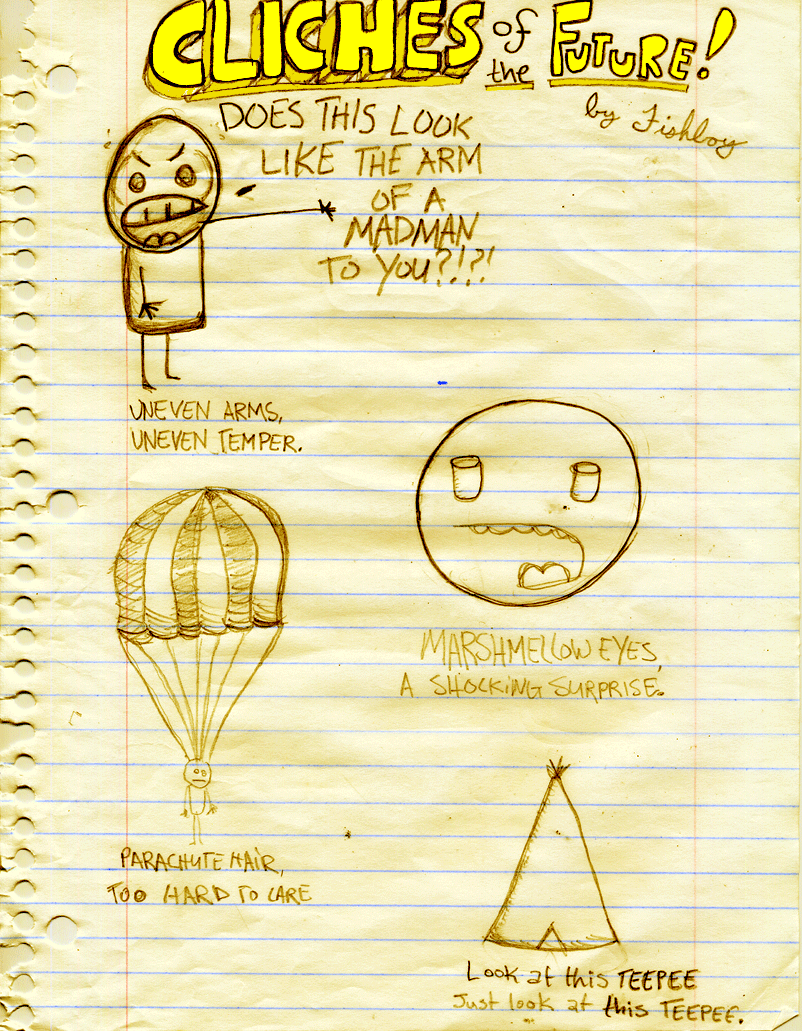 CLICHES of the FUTURE!
by Fishboy
DOES THIS LOOK
LIKE THE ARM
OF A
MADMAN
TO YOU?!?!
UNEVEN ARMS,
UNEVEN TEMPER.
MARSHMELLOW EYES,
A SHOCKING SURPRISE.
PARACHUTE HAIR,
TOO HARD TO CARE
Look at this TEEPEE
Just look at this TEEPEE.